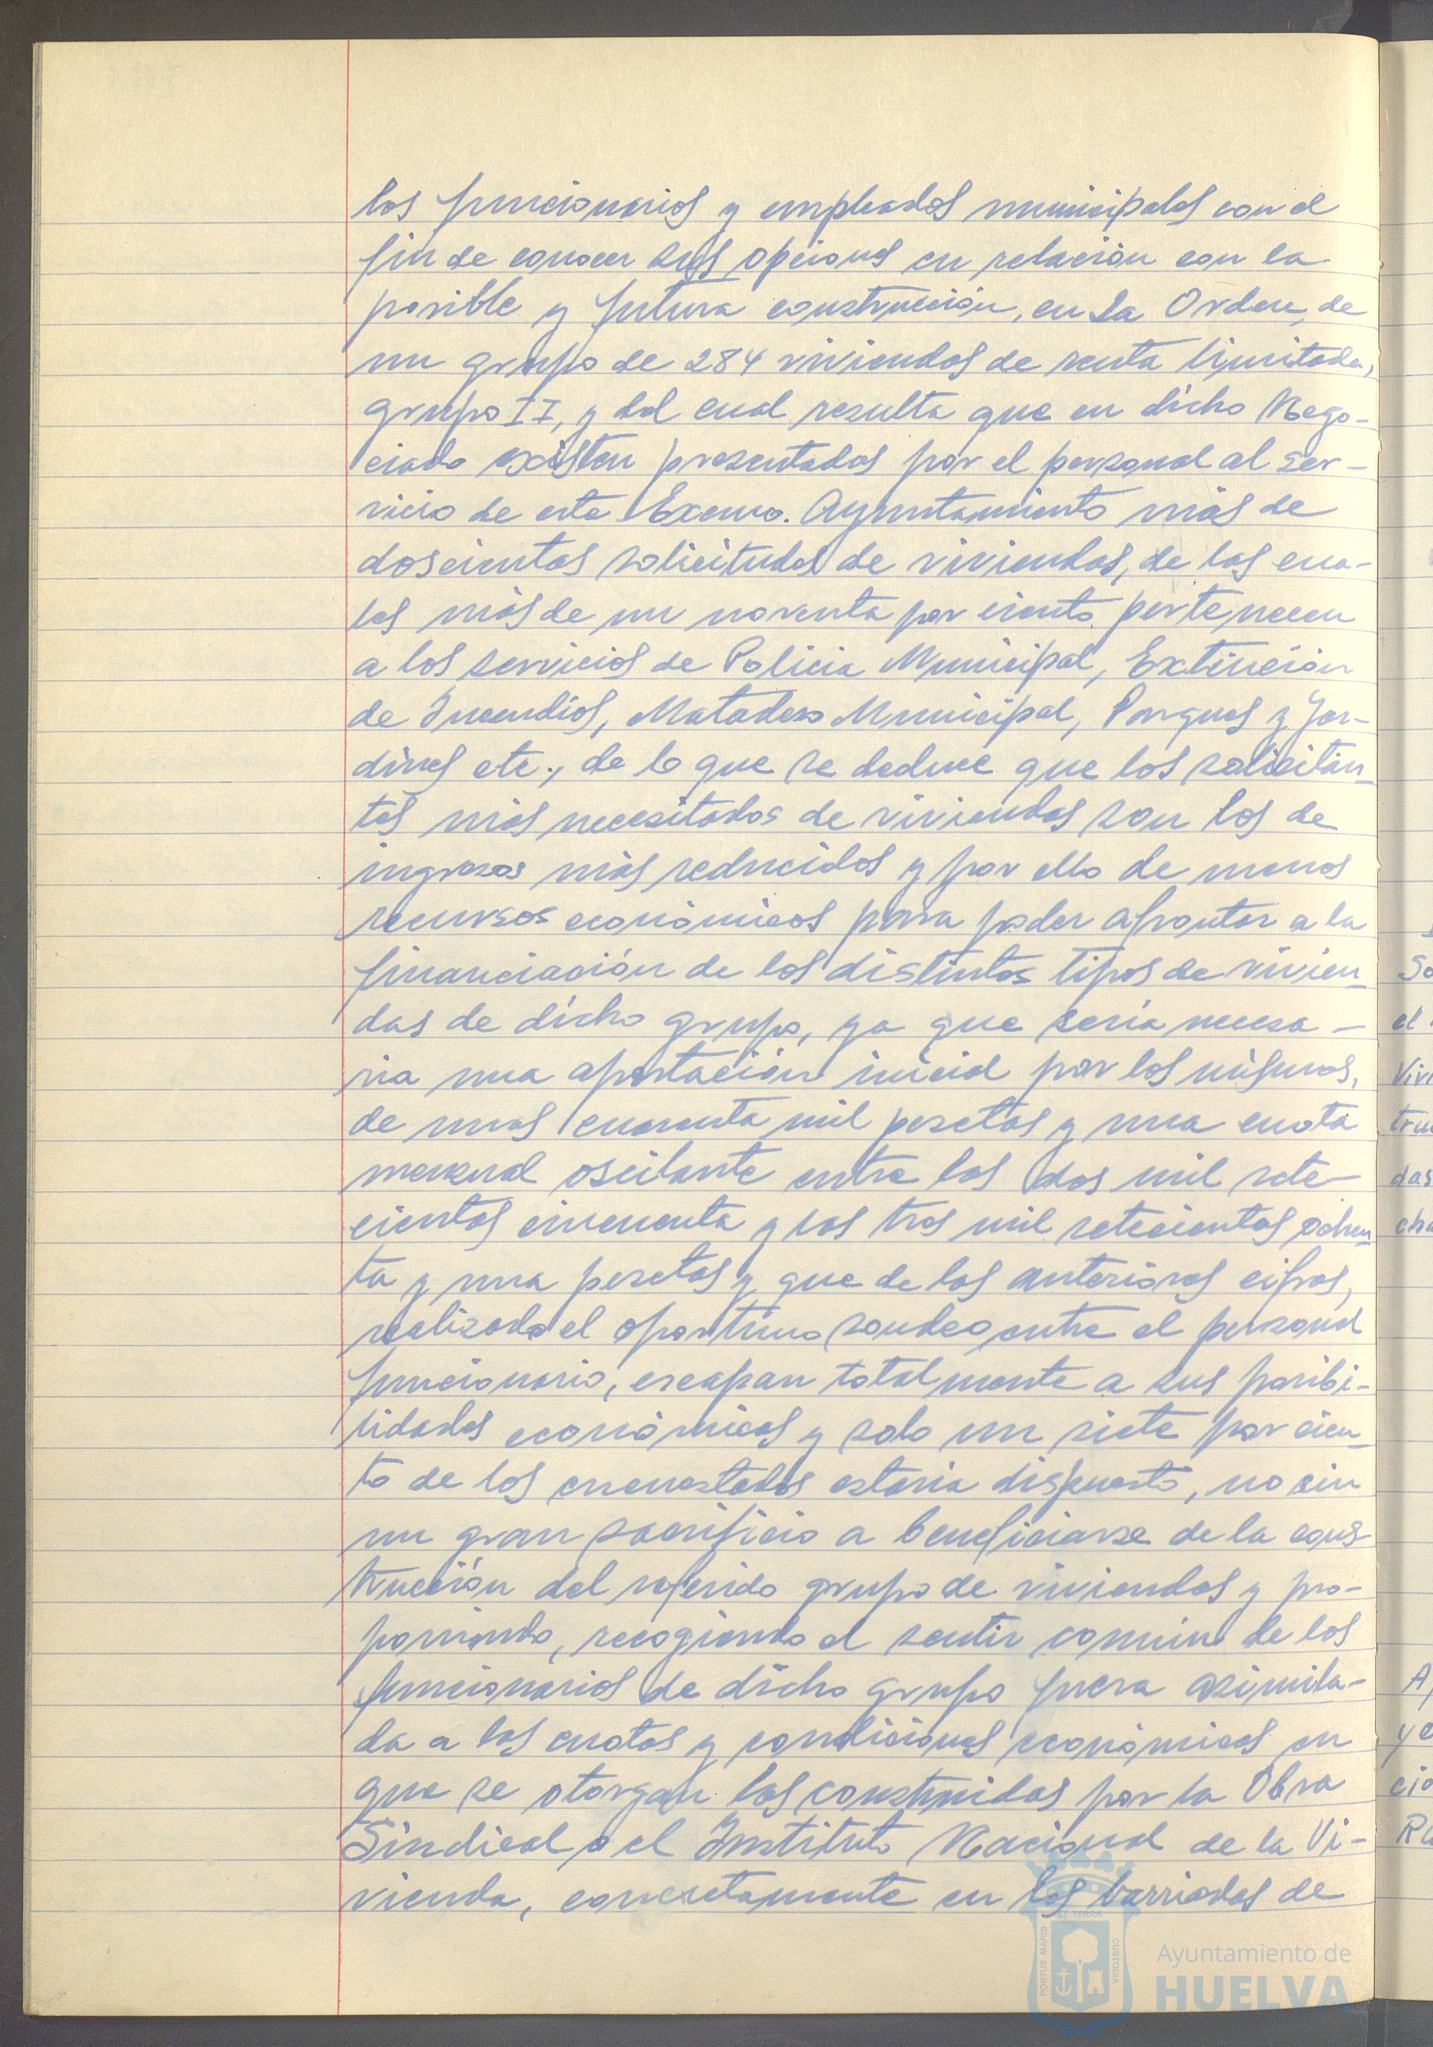 los funcionarios y empleados municipales con el
fin de conocer sus opciones en relación con la
posible y futura construcción, en La Orden, de
un grupo de 284 viviendas de renta limitada,
grupo II, y del cual resulta que en dicho Nego-
ciado existen presentadas por el personal al ser-
vicio de este Excmo. Ayuntamiento más de
doscientas solicitudes de viviendas, de las cua-
les más de un noventa por ciento pertenecen
a los servicios de Policia Municipal, Extinción
de Incendios, Matadero Municipal, Parques y Jar-
dines etc., de lo que se deduce que los solicitan-
tes más necesitados de viviendas son los de
ingresos más reducidos y por ello de menos
recursos económicos para poder afrontar a la
financiación de los distintos tipos de vivien-
das de dicho grupo, ya que sería necesa-
ria una aportación inicial por los mismos,
de unas cuarenta mil pesetas y una cuota
mensual oscilante entre las dos mil sete-
cientas cincuenta y las tres mil setecientas ochen-
ta y una pesetas y que de las anteriores cifras,
realizado el oportuno sondeo entre el personal
funcionario, escapan totalmente a sus posibi-
lidades económicas y solo un siete por cien-
to de los encuestados estaria dispuesto, no sin
un gran sacrificio a beneficiarse de la cons
trucción del referido grupo de viviendas y pro-
poniendo, recogiendo el sentir común de los
funcionarios de dicho grupo fuera asimila-
da a las cuotas y condiciones económicas en
que se otorgan las construidas por la Obra
Sindical o el Instituto Nacional de la Vi-
vienda, concretamente en las barriadas de
Ayuntamiento de
HUELVA
PORTUS MARIS
ET TERRAE
CUSTODIA